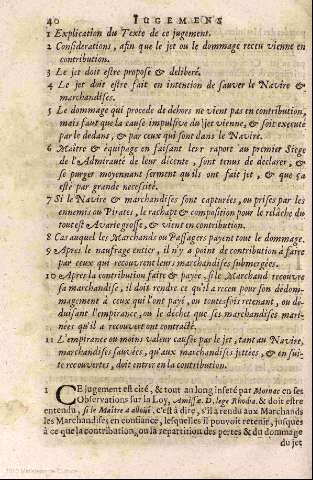 40 IUGEMENS
1 Explication du Texte de ce jugement.
2 Considerations, afin que le jet ou le dommage receu vienne en
contribution.
3 Le jet doit estre proposé & deliberé.
4 Le jet doit estre fait en intention de sauver le Navire &
marchandises.
5 Le dommage qui procede de dehors ne vient pas en contribution,
mais faut que la cause impulsive du jet vienne, & soit executé
par le dedans, & par ceux qui sont dans le Navire.
6 Maitre & équipage en faisant leur raport au premier Siege
de l'Admirauté de leur décente, sont tenus de declarer, &
se purger moyennant serment qu'ils ont fait jet, & que ça
esté par grande necessité.
7 Si le Navire & marchandises sont capturées, ou prises par les
ennemis ou Pirates, le rachapt & composition pour le relâche du
tout est Avarie grosse, & vient en contribution.
8 Cas auquel les Marchands ou Passagers payent tout le dommage.
9 Après le naufrage entier, il n'y a point de contribution à faire
par ceux qui recouvrent leurs marchandises submergées.
10 Après la contribution faite & payée, si le Marchand recouvre
sa marchandise, il doit rendre ce qu'il a receu pour son dédom-
magement à ceux qui l'ont payé, ou toutesfois retenant, ou de-
duisant l'empirance, ou le déchet que ses marchandises mari-
nées qu'il a recouvert ont contracté.
11 L'empirance ou moins valeur causée par le jet, tant au Navire,
marchandises sauvées, qu'aux marchandises jettées, & en sui-
te recouvertes, doit entrer en la contribution.
1 CE Jugement est cité, & tout au long inseré par Mornac en ses
Observations sur la Loy, Amissæ D. lege Rhodia. & doit estre
entendu, si le Maitre a alloüé, c'est à dire, s'il a rendu aux Marchands
les Marchandises en confiance, lesquelles il pouvoit retenir, jusques
à ce que la contribution, ou la repartition des pertes & du dommage
du jet